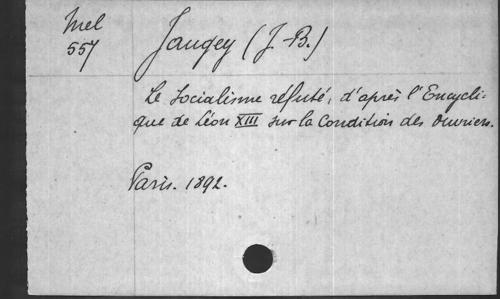 Mel
557
Jaugey (J.-B.)
Le Socialisme réfuté, d'après l'Encycli-
que de Léon XIII sur la Condition des Ouvriers.
Paris. 1892.